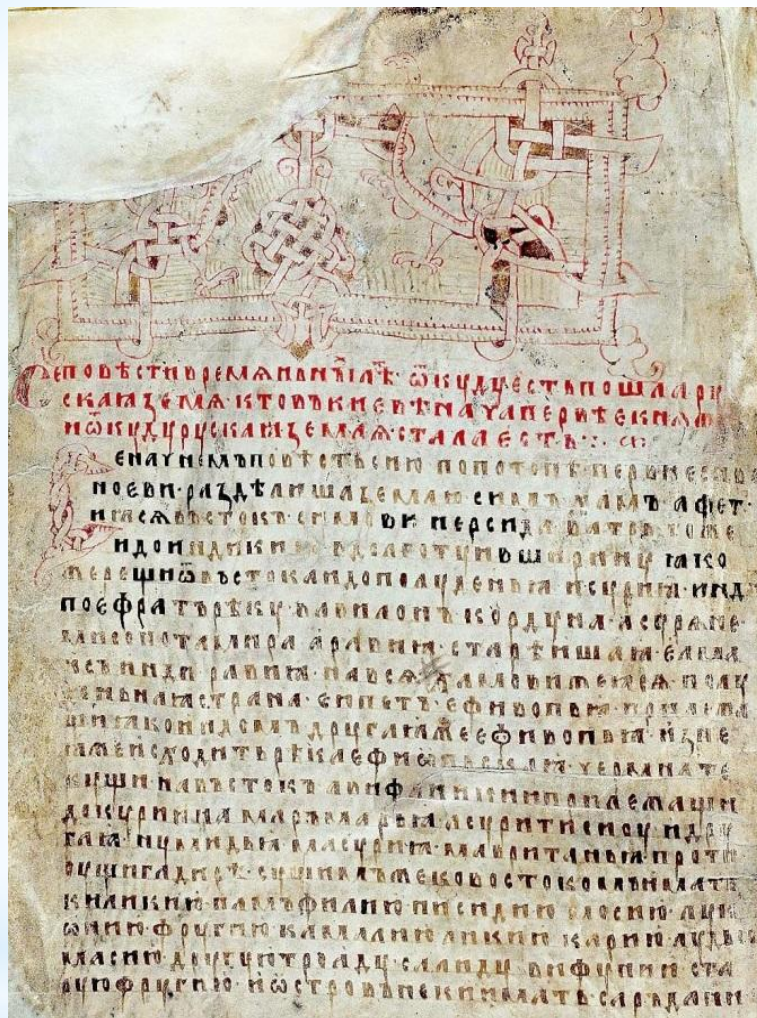 Се повѣсти времѧньнꙑⷯ лѣⷮ · ѿкуду єсть пошла ру
скаꙗ земѧ · кто въ києвѣ нача первѣє кнѧ
и ѿкуду рускаꙗ землѧ стала єсть ·:·
Се начнемъ повѣсть сию · по потопѣ · первиє снве
ноєви · раздѣлиша землю · симъ хамъ афет ·
и ꙗсѧ въстокъ симови · персида ватрь · тоже
и до индикиꙗ в долготу и в ширину ꙗко
же рещи ѿ въстока и до полуденьꙗ · и суриꙗ · и инд
по єфратъ рѣку · вавилонъ · кордуна · асурѧне ·
мисопотамира · аравиꙗ · старѣишаꙗ · єлма
исъ · инди · равиꙗ · на всѧ · хамови же ꙗсѧ · полу
деньнаꙗ страна · єюпетъ · ефивопьꙗ · прилежа
щиꙗ ко индомъ · другаꙗ же єфивопьꙗ · из не
ꙗже исходить рѣка · ефиѡпьскаꙗ · чермна · те
кущи на въстокъ · прилежащи
до куриниꙗ · маръмарьꙗ · асурити · сиоу · и дру
гаꙗ · нумидьꙗ · масуриꙗ · мавританьꙗ · проти
оу сущи гадирѣ · сущимъ же ко востокомъ имать
киликию · памъфилию · писидию · мосию · лук
ѡнию · фругию · камалию · ликию · карию · лудь
масию · другую · троаду · солиду · вифунию · ста
рую фругию · и ѡстровъ неки имать · саръдани